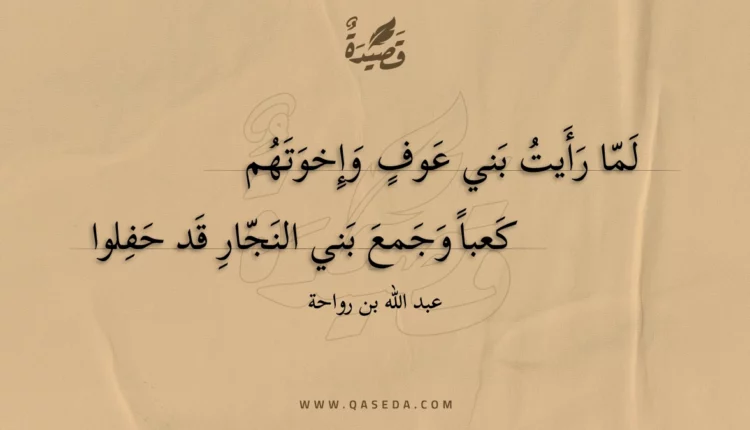 قَصِيدَةٌ
لَمّا رَأَيتُ بَني عَوفٍ وَإِخوَتَهُم
كَعباً وَجَمعَ بَني النَجّارِ قَد حَفِلوا
عبد الله بن رواحة
WWW.QASEDA.COM